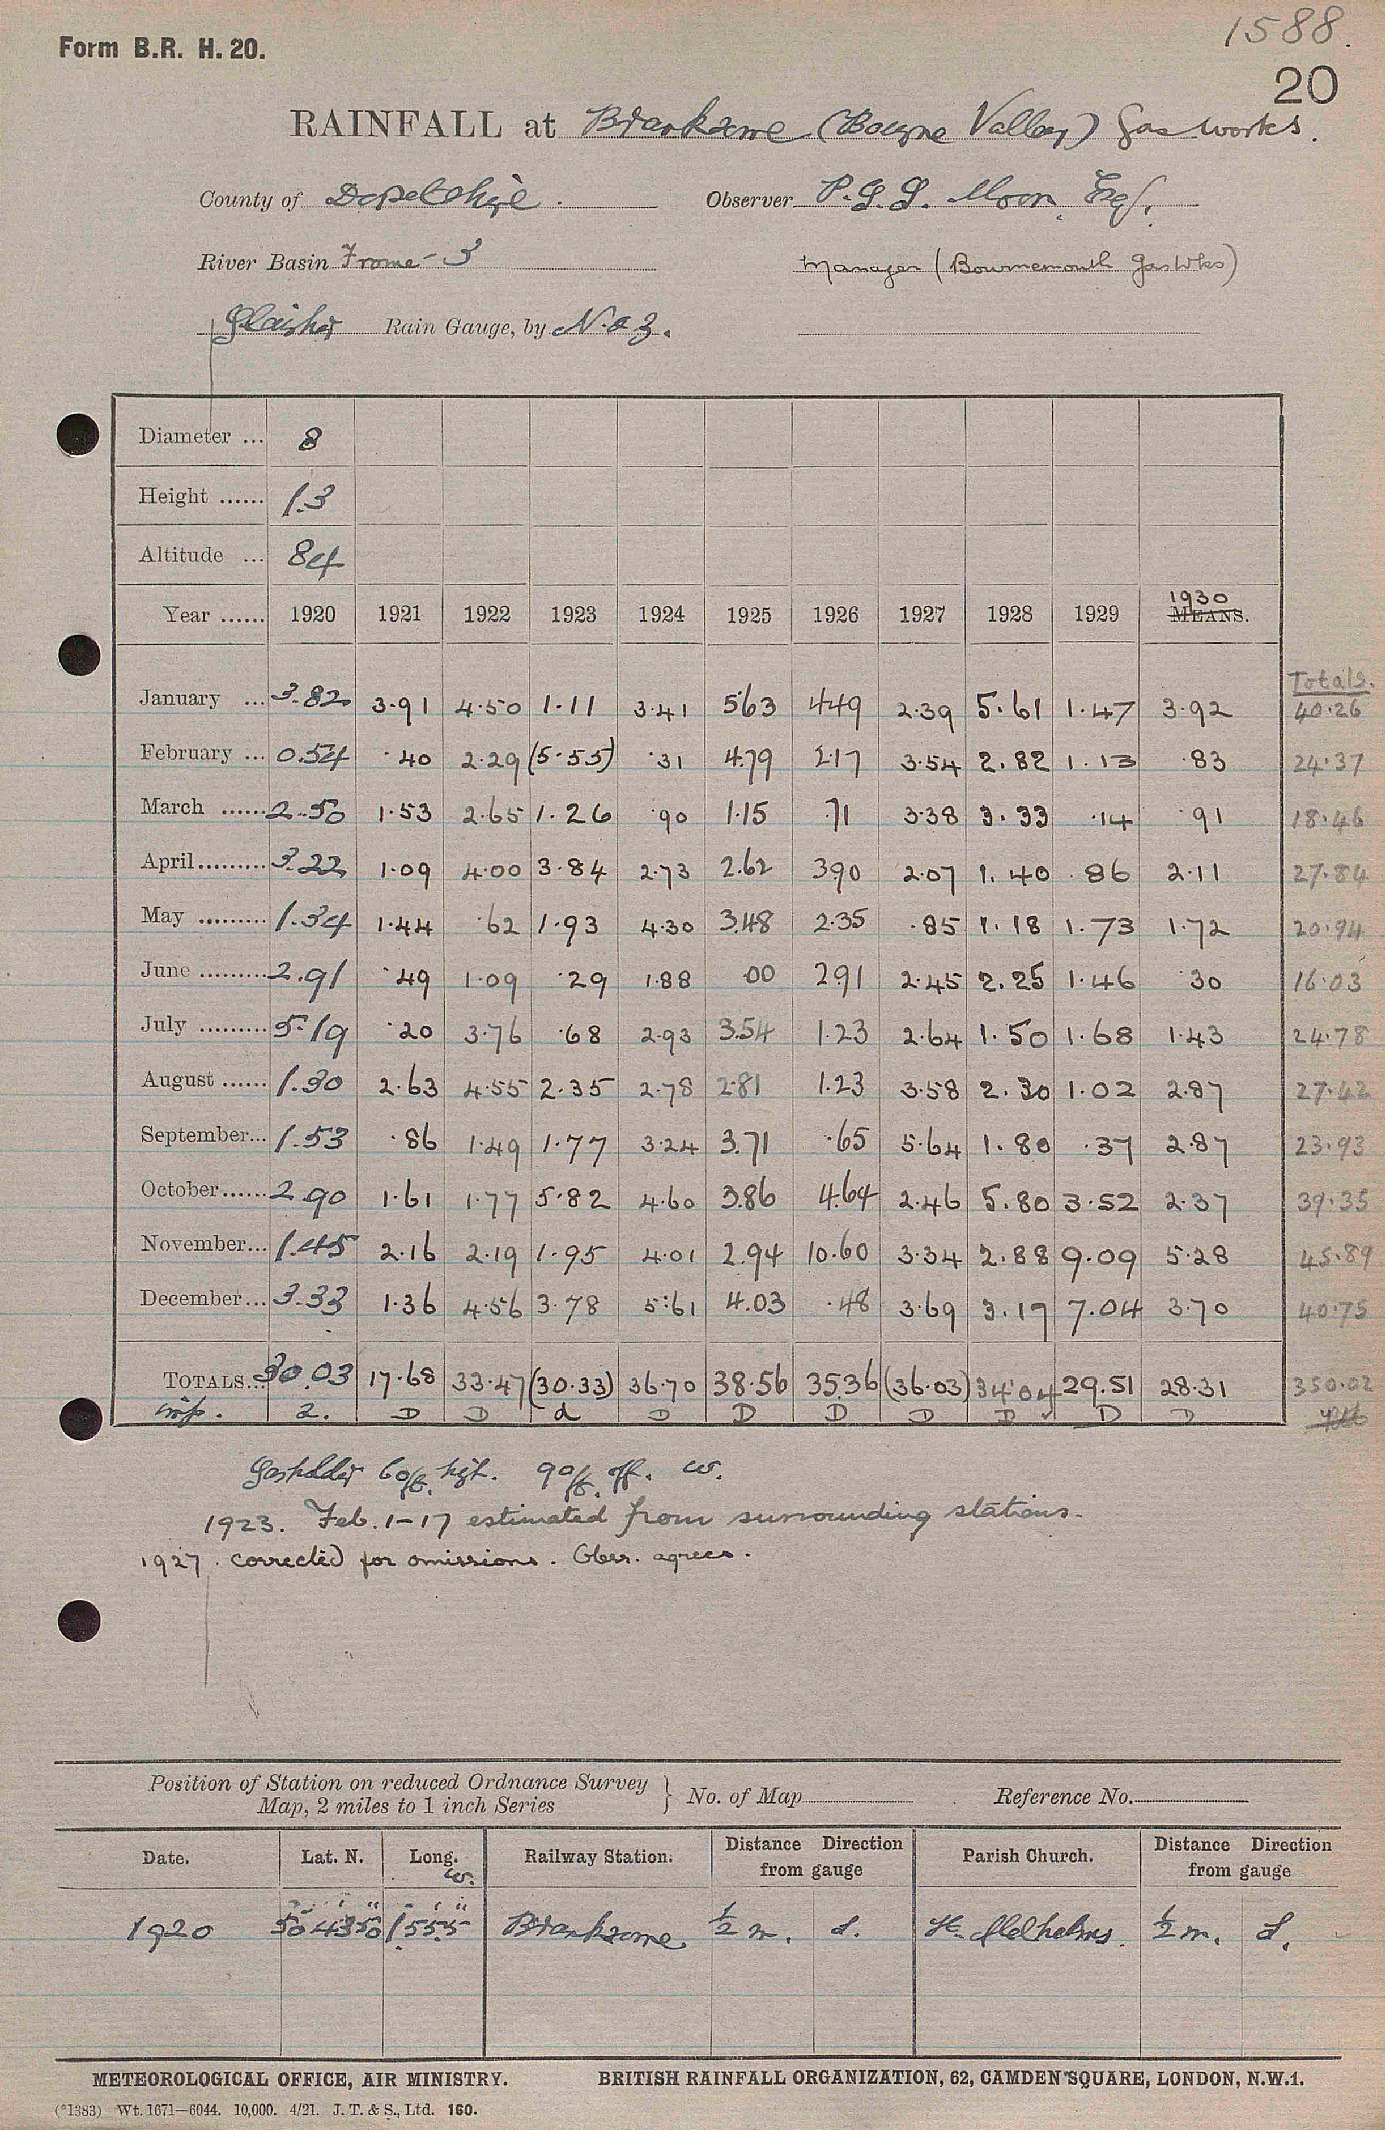 1588.
Form B.R. H. 20.
20
RAINFALL at Branksome (Bourne Valley) Gas Works.
County of Dorsetshire. Observer P. G. G. Moon, Esq.,
River Basin Frome - 3 Manager (Bournemouth Gas Wks)
Glaisher Rain Gauge, by N. & Z.
Diameter ... 8
Height ...... 1.3
Altitude ... 84
1930
Year ...... 1920 1921 1922 1923 1924 1925 1926 1927 1928 1929 MEANS.
Totals.
January ... 3.82 3.91 4.50 1.11 3.41 5.63 4.49 2.39 5.61 1.47 3.92 40.26
February ... 0.54 .40 2.29 (5.55) .31 4.79 2.17 3.54 2.82 1.13 .83 24.37
March ...... 2.50 1.53 2.65 1.26 .90 1.15 .71 3.38 3.33 .14 .91 18.46
April ......... 3.22 1.09 4.00 3.84 2.73 2.62 3.90 2.07 1.40 .86 2.11 27.84
May ......... 1.34 1.44 .62 1.93 4.30 3.48 2.35 .85 1.18 1.73 1.72 20.94
June ......... 2.91 .49 1.09 .29 1.88 .00 2.91 2.45 2.25 1.46 .30 16.03
July ......... 5.19 .20 3.76 .68 2.93 3.54 1.23 2.64 1.50 1.68 1.43 24.78
August ...... 1.30 2.63 4.55 2.35 2.78 2.81 1.23 3.58 2.30 1.02 2.87 27.42
September... 1.53 .86 1.49 1.77 3.24 3.71 .65 5.64 1.80 .37 2.87 23.93
October...... 2.90 1.61 1.77 5.82 4.60 3.86 4.64 2.46 5.80 3.52 2.37 39.35
November... 1.45 2.16 2.19 1.95 4.01 2.94 10.60 3.34 2.88 9.09 5.28 45.89
December... 3.33 1.36 4.56 3.78 5.61 4.03 .48 3.69 3.17 7.04 3.70 40.75
TOTALS... 30.03 17.68 33.47 (30.33) 36.70 38.56 35.36 (36.03) 34.04 29.51 28.31 350.02
2. D D d D D D D D D D
Gasholder 60 ft. high. 90 ft. off. W.
1923. Feb. 1-17 estimated from surrounding stations.
1927. corrected for omissions. Obsr. agrees.
Position of Station on reduced Ordnance Survey
Map, 2 miles to 1 inch Series } No. of Map Reference No.
Date. Lat. N. Long. W. Railway Station. Distance from gauge Direction Parish Church. Distance from gauge Direction
1920 50° 43' 50" 1° 55' 5" Branksome. ½ m. S. St. Aldhelms. ½ m. S.
METEOROLOGICAL OFFICE, AIR MINISTRY. BRITISH RAINFALL ORGANIZATION, 62, CAMDEN SQUARE, LONDON, N.W.1.
(*1383) Wt. 1671—6044. 10,000. 4/21. J. T. & S., Ltd. 160.